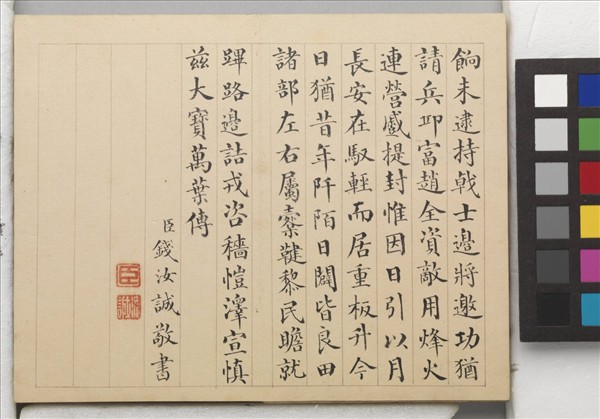 餉未逮持戟士邊將邀功猶
請兵卭富趙全資敵用烽火
連營慼提封惟因日引以月
長安在馭輕而居重板升今
日猶昔年阡陌日闢皆良田
諸部左右屬櫜鞬黎民瞻就
蹕路邊詰戎咨穡愷澤宣慎
兹大寶萬葉傳
臣錢汝誠敬書
臣